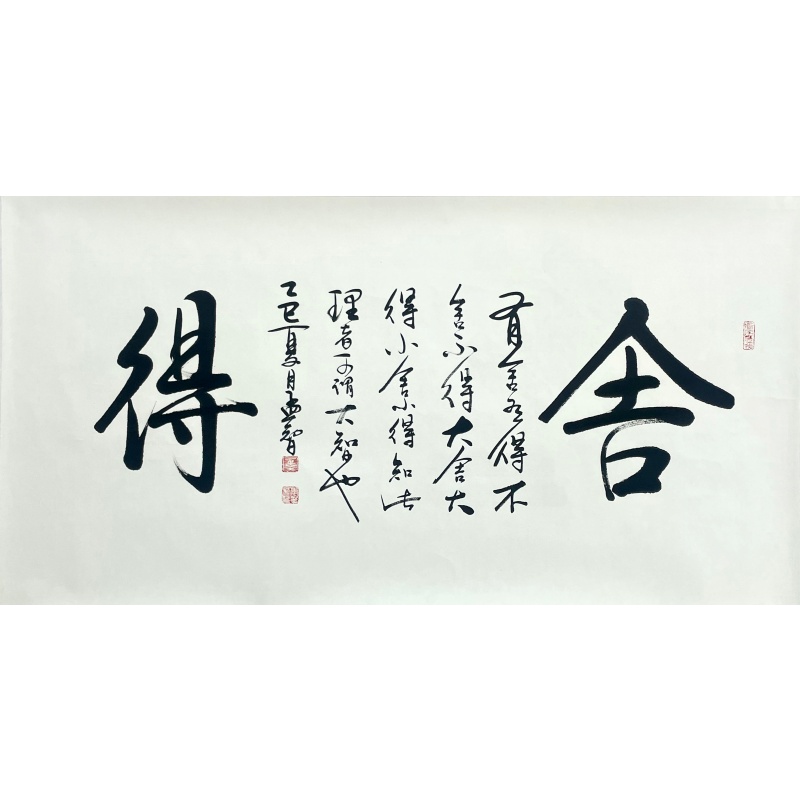 舍
有舍有得不
舍不得大舍大
得小舍小得知此
理者可谓大智也
乙巳夏月孟智
得